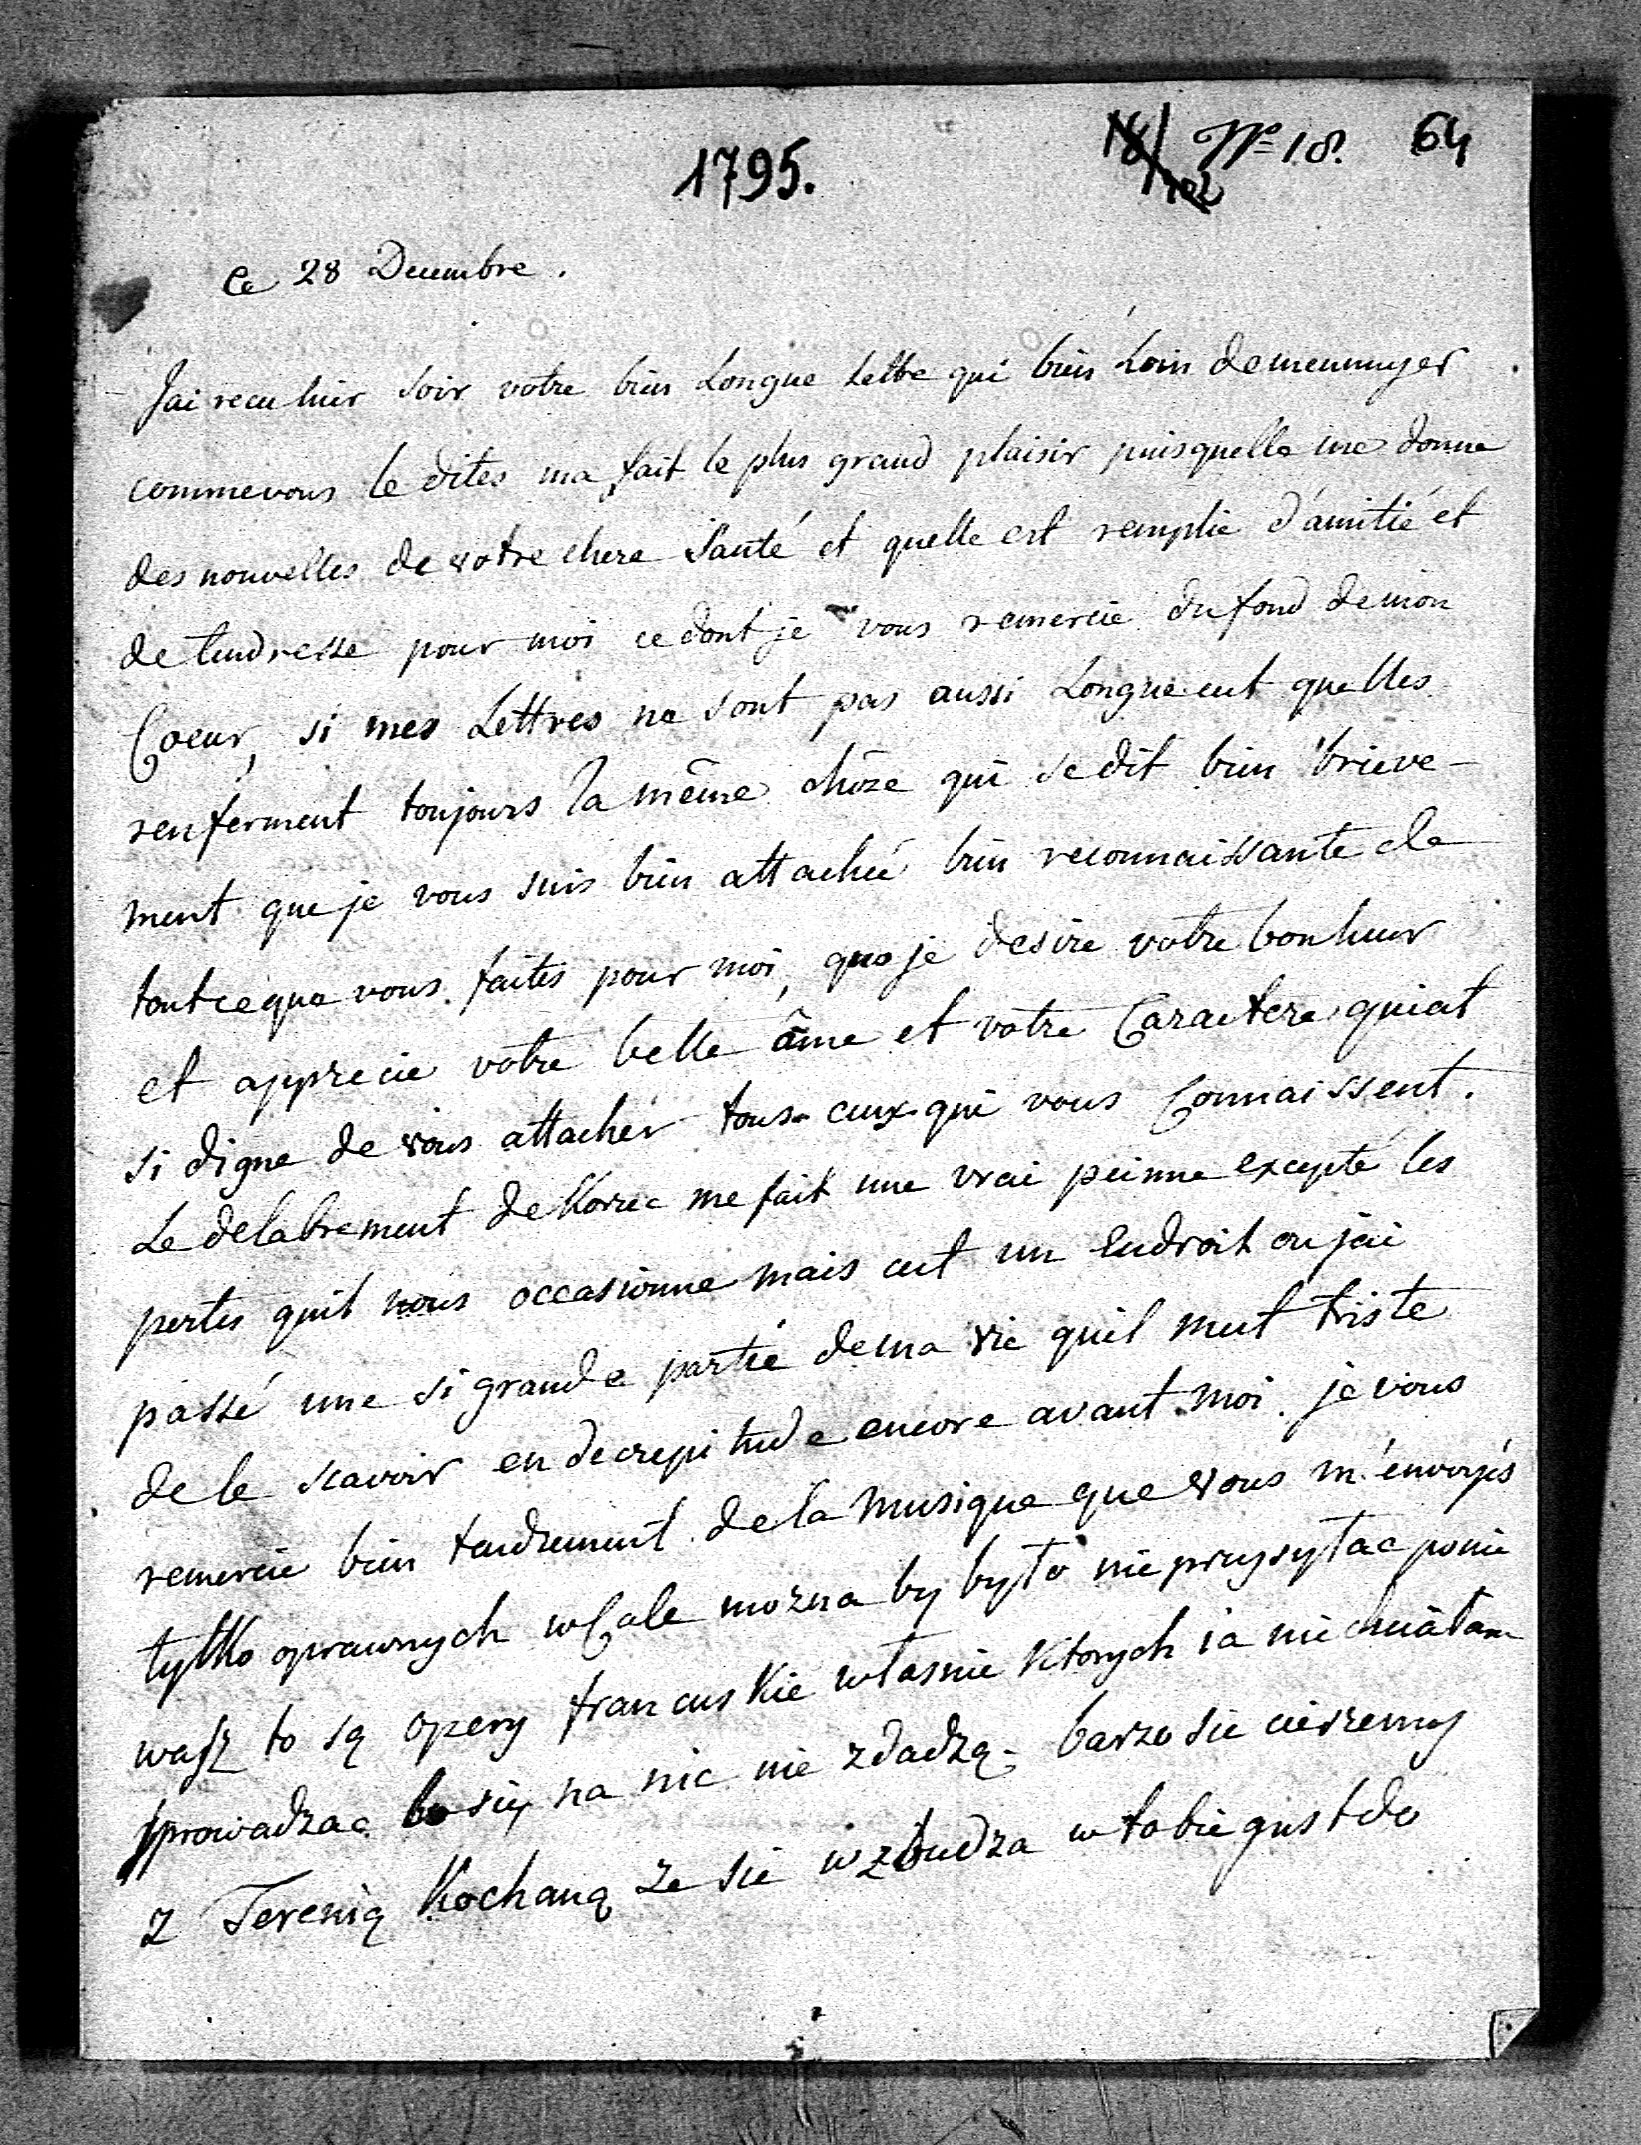 1795.
No 18. 64
Ce 28 Decembre.
Jai recu hier soir votre bien Longue Lettre qui bien Loin de mennuyer
comme vous le dites ma fait le plus grand plaisir puisquelle me donne
des nouvelles de votre chere Santé et quelle est remplie d'amitié et
de tendresse pour moi ce dont je vous remercie du fond de mon
Coeur, si mes Lettres ne sont pas aussi Longue cest quelles
renferment toujours la même chôze qui se dit bien brieve-
ment que je vous suis bien attachée bien reconnaissante de
tout ce que vous faites pour moi, que je desire votre bonheur
et apprecie votre belle âme et votre Caractere qui est
si digne de vous attacher tous ceux qui vous Connaissent.
Le delabrement de Korzec me fait une vrai peinne excepté les
pertes quil nous occasionne mais cest un Endroit ou jai
passé une si grande partie de ma vie quil mest triste
de le scavoir en decrepitude encore avant moi. je vous
remercie bien tendrement de la Musique que vous m'énvoyés
tylko oprawnych wCale mozna by było nie przysyłac ponie
waſz to są opery francuskie własnie Ktorych ia nie chciałam
sprowadzac bo się na nic nie zdadzą. barzo sie cieszemy
z Terenią Kochaną ze sie wzbudza w tobie gust do